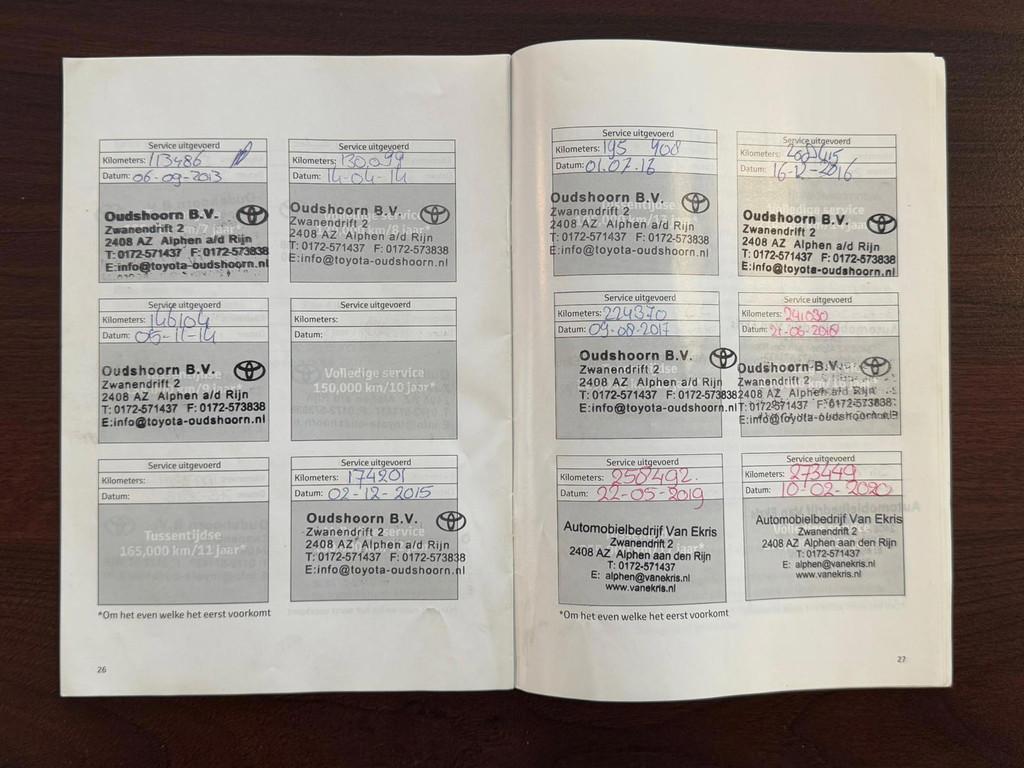 Service uitgevoerd
Kilometers: 113486
Datum: 06-09-2013
Oudshoorn B.V.
Zwanendrift 2
2408 AZ Alphen a/d Rijn
T: 0172-571437 F: 0172-573838
E:info@toyota-oudshoorn.nl
Service uitgevoerd
Kilometers: 130.099
Datum: 14-04-14
Oudshoorn B.V.
Zwanendrift 2
2408 AZ Alphen a/d Rijn
T: 0172-571437 F: 0172-573838
E:info@toyota-oudshoorn.nl
Service uitgevoerd
Kilometers: 146104
Datum: 05-11-14
Oudshoorn B.V.
Zwanendrift 2
2408 AZ Alphen a/d Rijn
T: 0172-571437 F: 0172-573838
E:info@toyota-oudshoorn.nl
Service uitgevoerd
Kilometers:
Datum:
Volledige service
150,000 km/10 jaar*
Service uitgevoerd
Kilometers:
Datum:
Tussentijdse
165,000 km/11 jaar*
Service uitgevoerd
Kilometers: 174201
Datum: 02-12-2015
Oudshoorn B.V.
Zwanendrift 2
2408 AZ Alphen a/d Rijn
T: 0172-571437 F: 0172-573838
E:info@toyota-oudshoorn.nl
*Om het even welke het eerst voorkomt
26
Service uitgevoerd
Kilometers: 195 908
Datum: 01.07.16
Oudshoorn B.V.
Zwanendrift 2
2408 AZ Alphen a/d Rijn
T: 0172-571437 F: 0172-573838
E:info@toyota-oudshoorn.nl
Service uitgevoerd
Kilometers:
Datum: 16-12-2016
Volledige service
Oudshoorn B.V.
Zwanendrift 2
2408 AZ Alphen a/d Rijn
T: 0172-571437 F: 0172-573838
E:info@toyota-oudshoorn.nl
Service uitgevoerd
Kilometers: 224370
Datum: 09-08-2017
Oudshoorn B.V.
Zwanendrift 2
2408 AZ Alphen a/d Rijn
T: 0172-571437 F: 0172-573838
E:info@toyota-oudshoorn.nl
Service uitgevoerd
Kilometers: 241090
Datum:
Oudshoorn B.V.
Zwanendrift 2
2408 AZ Alphen a/d Rijn
T: 0172-571437 F: 0172-573838
E:info@toyota-oudshoorn.nl
Service uitgevoerd
Kilometers: 258492.
Datum: 22-05-2019
Automobielbedrijf Van Ekris
Zwanendrift 2
2408 AZ Alphen aan den Rijn
T: 0172-571437
E: alphen@vanekris.nl
www.vanekris.nl
Service uitgevoerd
Kilometers: 273449
Datum: 10-02-2020
Automobielbedrijf Van Ekris
Zwanendrift 2
2408 AZ Alphen aan den Rijn
T: 0172-571437
E: alphen@vanekris.nl
www.vanekris.nl
*Om het even welke het eerst voorkomt
27